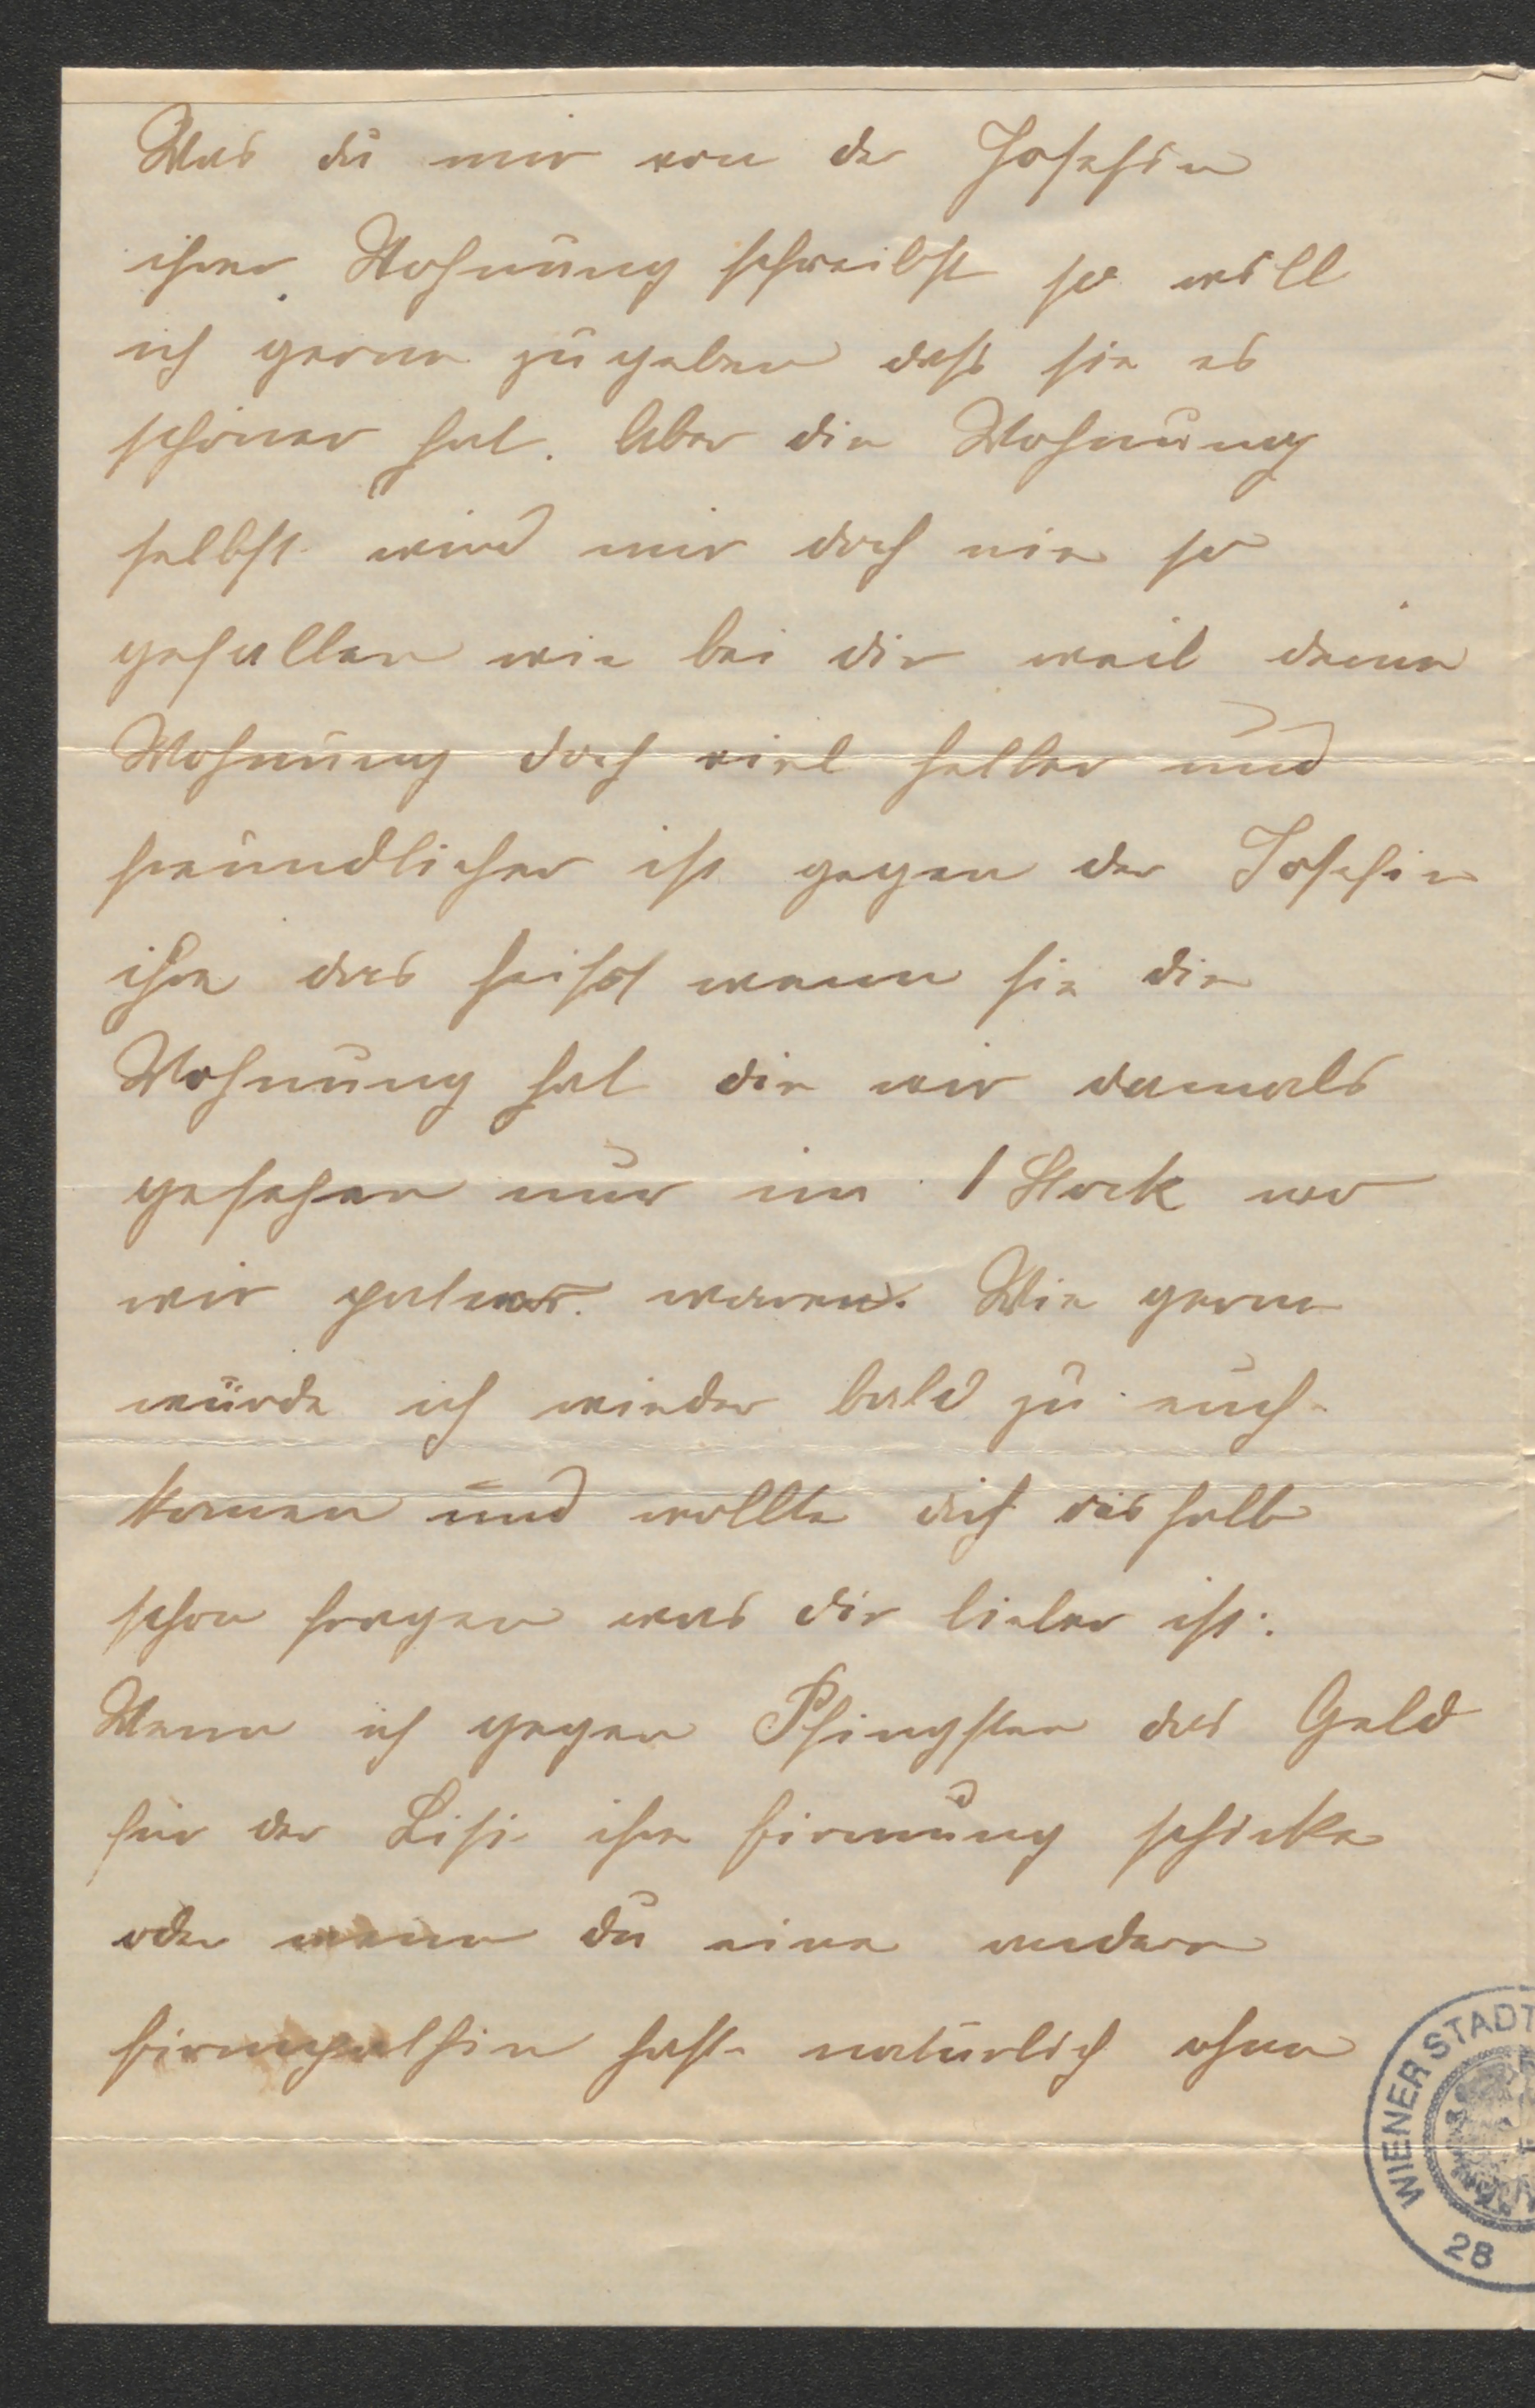 Was du mir von der Josefin
ihrer Wohnung schreibst so will
ich gerne zugeben dass sie es
schöner hat. Aber die Wohnung
selbst wird mir doch nie so
gefallen wie bei dir weil deine
Wohnung doch viel heller und
freundlicher ist gegen der Josefin
ihre das heisst wenn sie die
Wohnung hat die wir damals
gesehen nur im 1 Stock wo
wir waren. Wie gerne
würde ich wieder bald zu euch
komen und wollte dich deshalb
schon fragen was dir lieber ist:
Wenn ich gegen Pfingsten das Geld
für der Lisi ihre Firmung schicke
oder wenn du eine andere
Firmpathin hast natürlich ohne
WIENER STADT
28